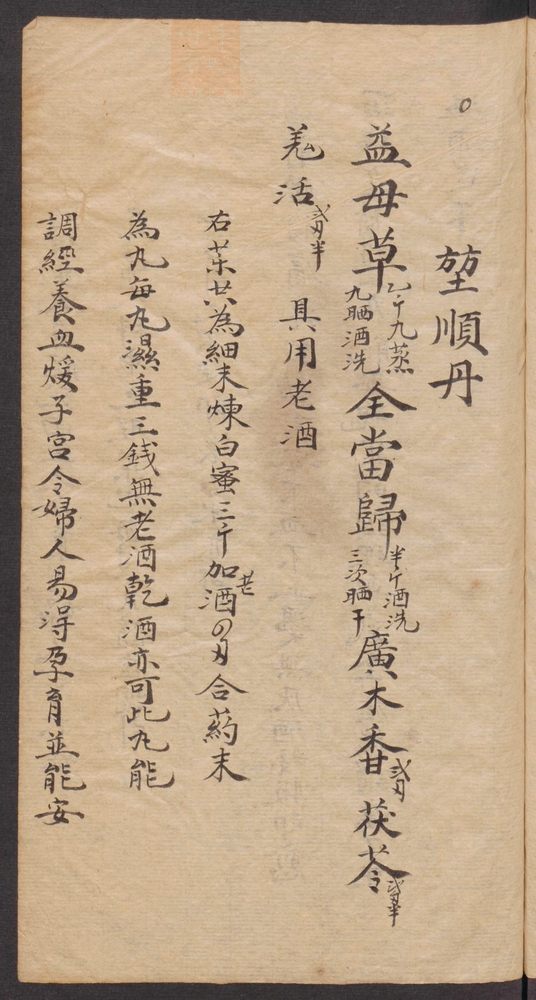 堃順丹
益母草乙斤九蒸九晒酒洗全當歸半斤酒洗三次晒干廣木香弍両茯苓弍両半
羗活弍両半 具用老酒
右药共為細末煉白蜜三斤加老酒四両合药末
為丸每丸濕重三銭無老酒乾酒亦可此丸能
調經養血煖子宮令婦人易淂孕育並能安